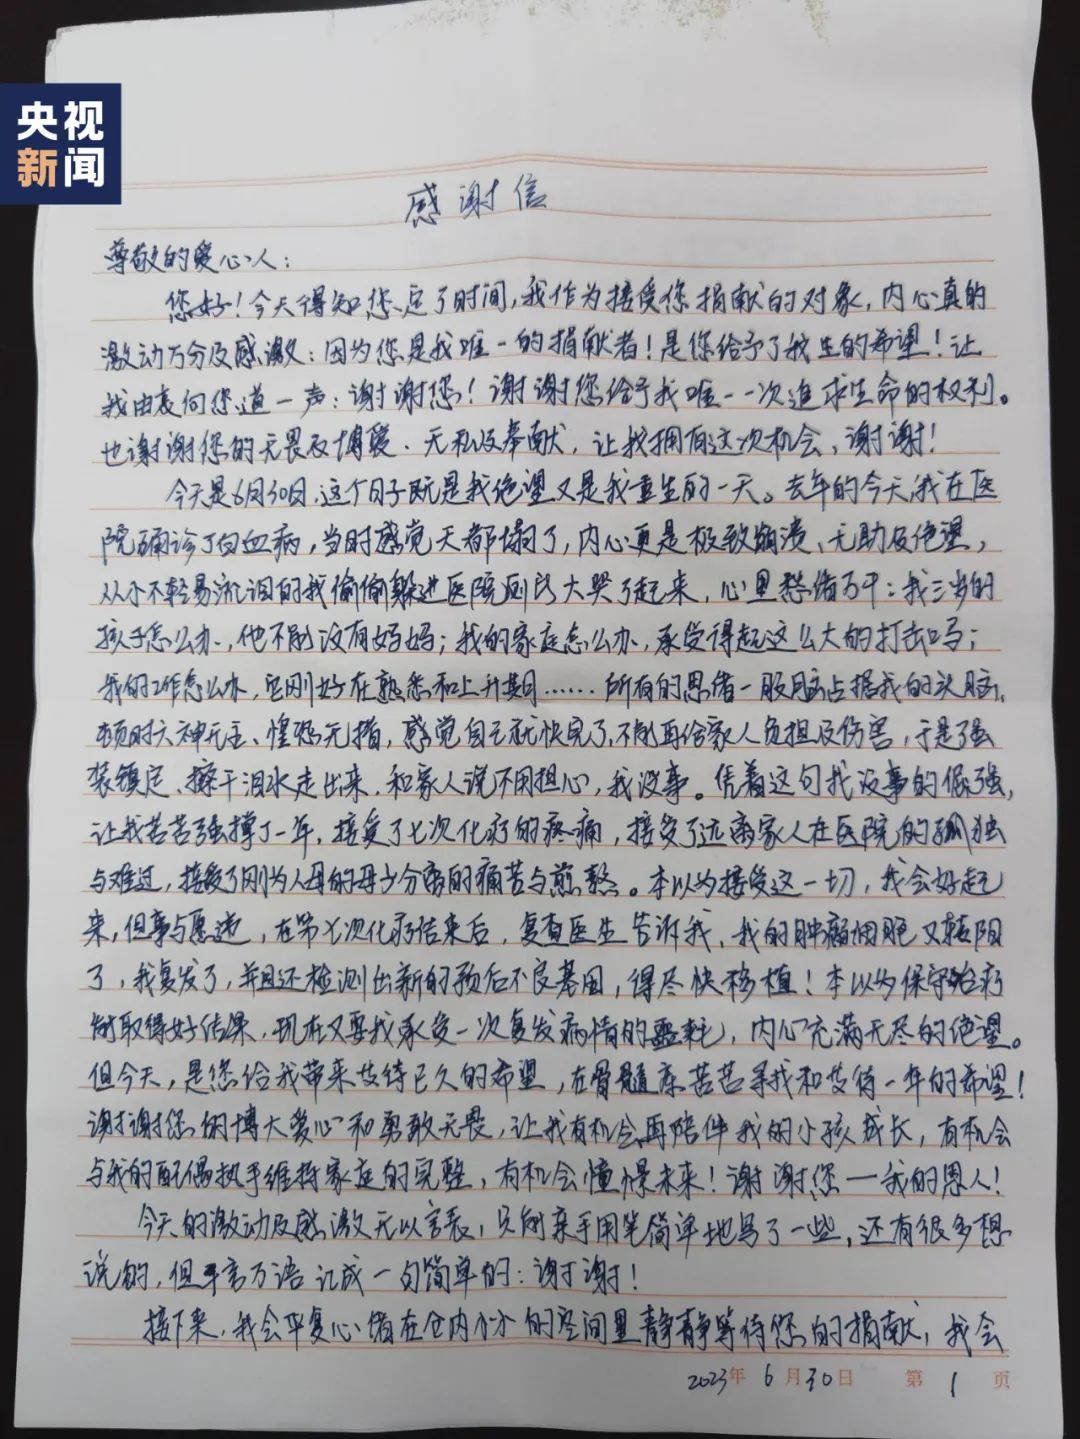 央视
新闻
感谢信
尊敬的爱心人：
您好！今天得知您定了时间，我作为接受您捐献的对象，内心真的
激动万分及感激：因为您是我唯一的捐献者！是您给予了我生的希望！让
我由衷向您道一声：谢谢您！谢谢您给予我唯一一次追求生命的权利。
也谢谢您的无畏及博爱、无私及奉献，让我拥有这次机会，谢谢！
今天是6月30日，这个日子既是我绝望又是我重生的一天。去年的今天，我在医
院确诊了白血病，当时感觉天都塌了，内心更是极致崩溃、无助及绝望，
从小不轻易流泪的我偷偷躲进医院厕所大哭了起来，心里愁绪万千：我三岁的
孩子怎么办，他不能没有妈妈；我的家庭怎么办，承受得起这么大的打击吗；
我的工作怎么办，它刚好在熟悉和上升期……所有的思绪一股脑占据我的头脑，
顿时六神无主、惶恐无措，感觉自己就快完了，不能再给家人负担及伤害，于是强
装镇定、擦干泪水走出来，和家人说不用担心，我没事。凭着这句我没事的倔强，
让我苦苦强撑了一年，接受了七次化疗的疼痛，接受了远离家人在医院的孤独
与难过，接受了刚为人母的母子分离的痛苦与煎熬。本以为接受这一切，我会好起
来，但事与愿违，在第七次化疗结束后，复查医生告诉我，我的肿瘤细胞又转阳
了，我复发了，并且还检测出新的预后不良基因，得尽快移植！本以为保守治疗
能取得好结果，现在又要我承受一次复发病情的噩耗，内心充满无尽的绝望。
但今天，是您给我带来期待已久的希望，在骨髓库苦苦寻找和期待一年的希望！
谢谢您的博大爱心和勇敢无畏，让我有机会再陪伴我的小孩成长，有机会
与我的配偶执手维持家庭的完整，有机会憧憬未来！谢谢您—我的恩人！
今天的激动及感激无以言表，只能亲手用笔简单地写了一些，还有很多想
说的，但千言万语汇成一句简单的：谢谢！
接下来，我会平复心绪在仓内小小的空间里静静等待您的捐献，我会
2023年 6月30日 第1页